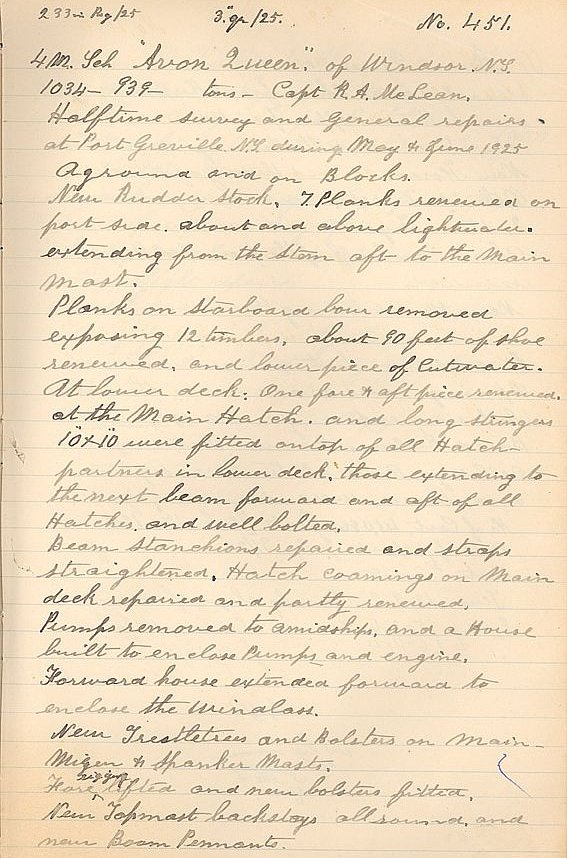 233 in Reg/25 3rd qr/25. No. 451.
4 M. Sch "Avon Queen." of Windsor. N.S.
1034 - 939 - tons - Capt R. A. McLean.
Halftime survey and General repairs.
at Port Greville. N.S. during May & June 1925
Aground and on Blocks.
New Rudder Stock. 7. Planks renewed on
port side. about and above lightwater.
extending from the Stem aft to the Main
Mast.
Planks on Starboard bow removed
exposing 12 timbers, about 90 feet of shoe
renewed. and lower piece of Cutwater.
At lower deck. One fore & aft piece renewed.
at the Main Hatch. and long stringers
10"x10" were fitted ontop of all Hatch-
partners in lower deck. those extending to
the next beam forward and aft of all
Hatches. and well bolted.
Beam Stanchions repaired and straps
straightened. Hatch coamings on Main
deck repaired and partly renewed.
Pumps removed to amidships. and a House
built to enclose Pumps and engine.
Forward house extended forward to
enclose the windlass.
New Trestletrees and Bolsters on Main-
Mizen & Spanker Masts.
Fore rigging lifted and new bolsters fitted.
New Topmast backstays all round. and
new Boom Pennants.